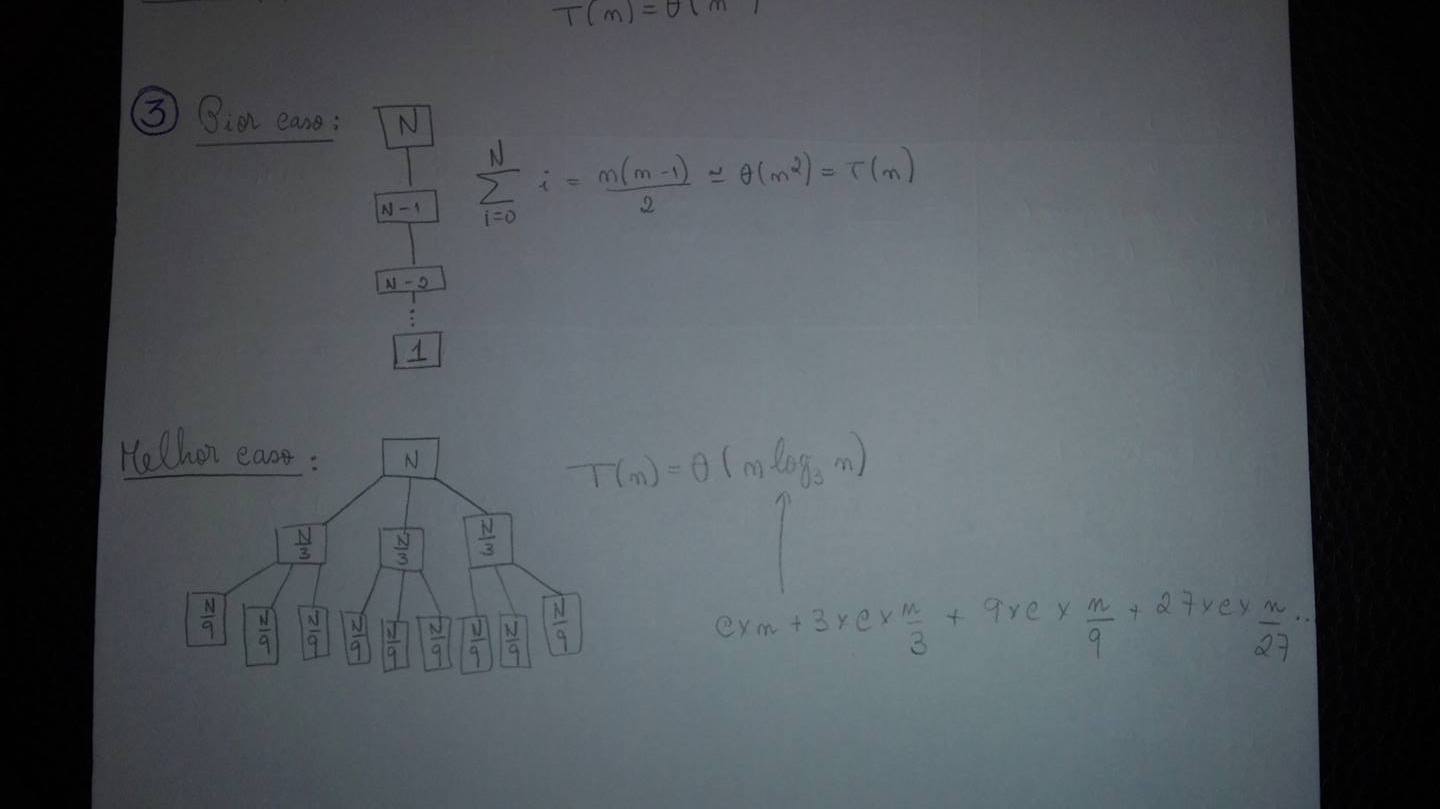 T(n) = θ(n
③ Pior caso:
N
N-1
N-2
...
1
N
∑ i = n(n-1)/2 ≃ θ(n²) = T(n)
i=0
Melhor caso:
N
N/3 N/3 N/3
N/9 N/9 N/9 N/9 N/9 N/9 N/9 N/9 N/9
T(n) = θ(n log₃ n)
c×n + 3×c×n/3 + 9×c×n/9 + 27×c×n/27 ...